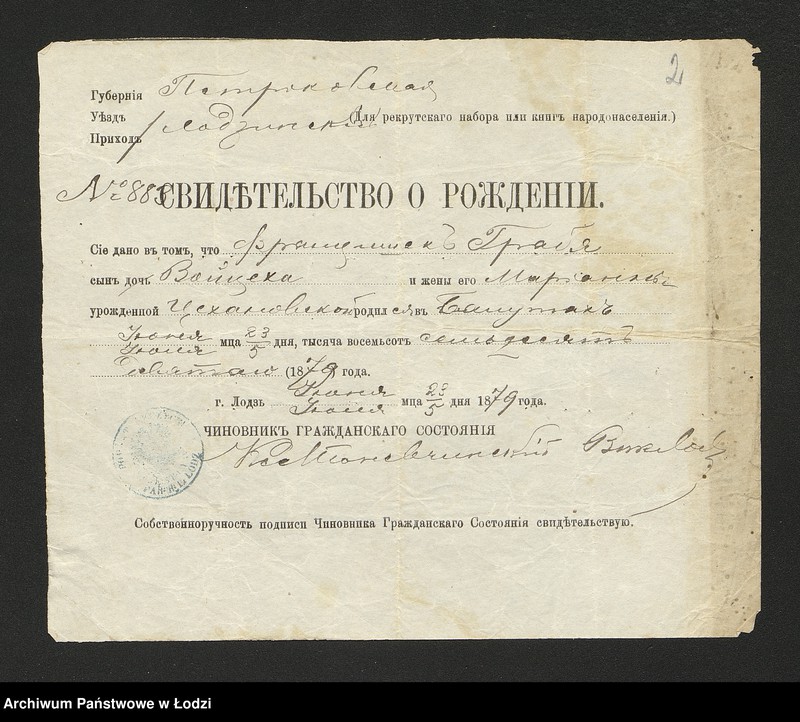 2
Губернія Петроковская
Уѣздъ
Приходъ Лодзинскій (Для рекрутскаго набора или книгъ народонаселенія.)
№ 883 СВИДѢТЕЛЬСТВО О РОЖДЕНІИ.
Сіе дано въ томъ, что Францишекъ Грабя
сынъ дочь Войцеха и жены его Маріанны
урожденной Цехановской родился въ Балутахъ
Іюня
Іюля мца 23/5 дня, тысяча восемьсотъ семьдесятъ
девятаго (1879) года.
г. Лодзь Іюня
Іюля мца 23/5 дня 1879 года.
ЧИНОВНИКЪ ГРАЖДАНСКАГО СОСТОЯНІЯ
Собственноручность подписи Чиновника Гражданскаго Состоянія свидѣтельствую.
Archiwum Państwowe w Łodzi